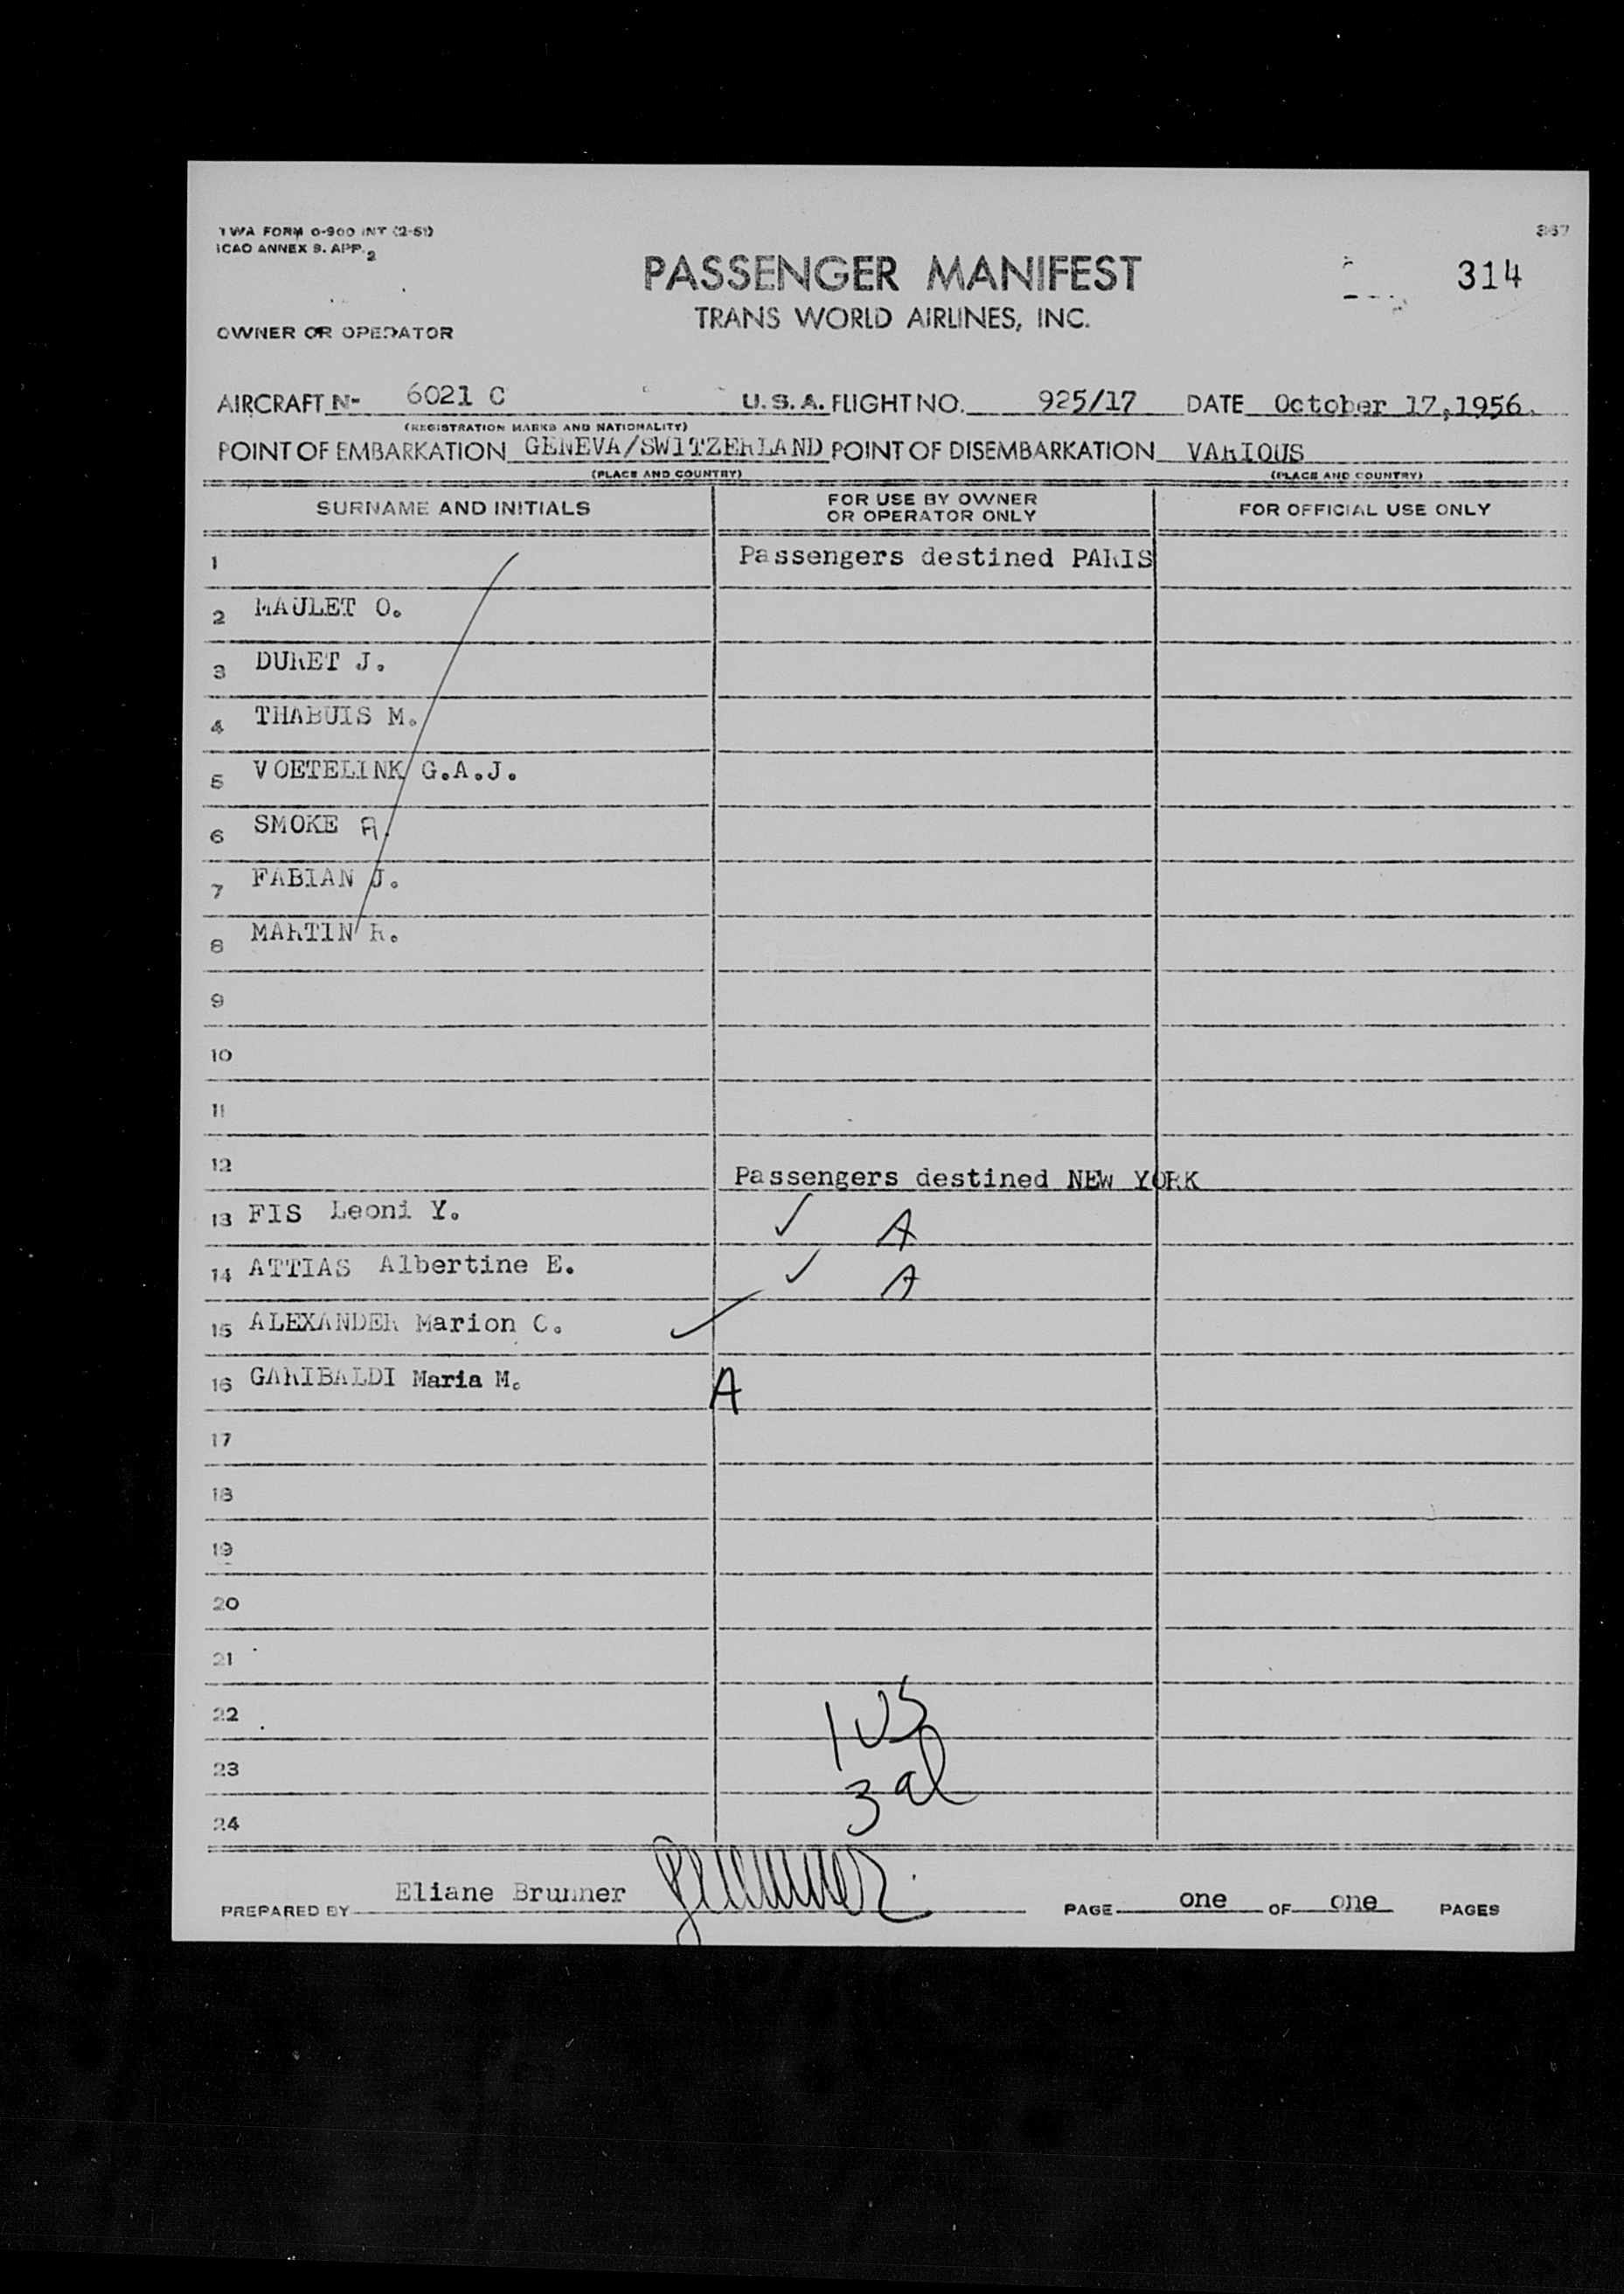 TWA FORM O-900 INT (2-51)
ICAO ANNEX 9. APP. 2
367
PASSENGER MANIFEST
314
TRANS WORLD AIRLINES, INC.
OWNER OR OPERATOR
AIRCRAFT N- 6021 C U.S.A. FLIGHT NO. 925/17 DATE October 17,1956.
(REGISTRATION MARKS AND NATIONALITY)
POINT OF EMBARKATION GENEVA/SWITZERLAND POINT OF DISEMBARKATION VARIOUS
(PLACE AND COUNTRY) (PLACE AND COUNTRY)
SURNAME AND INITIALS FOR USE BY OWNER OR OPERATOR ONLY FOR OFFICIAL USE ONLY
1 Passengers destined PARIS
2 MAULET O.
3 DURET J.
4 THABUIS M.
5 VOETELINK G.A.J.
6 SMOKE A.
7 FABIAN J.
8 MARTIN R.
9
10
11
12 Passengers destined NEW YORK
13 FIS Leoni Y. ✓ A
14 ATTIAS Albertine E. ✓ A
15 ALEXANDER Marion C. ✓
16 GARIBALDI Maria M. A
17
18
19
20
21
22 1 US
23 3 al
24
PREPARED BY Eliane Brunner Brunner PAGE one OF one PAGES